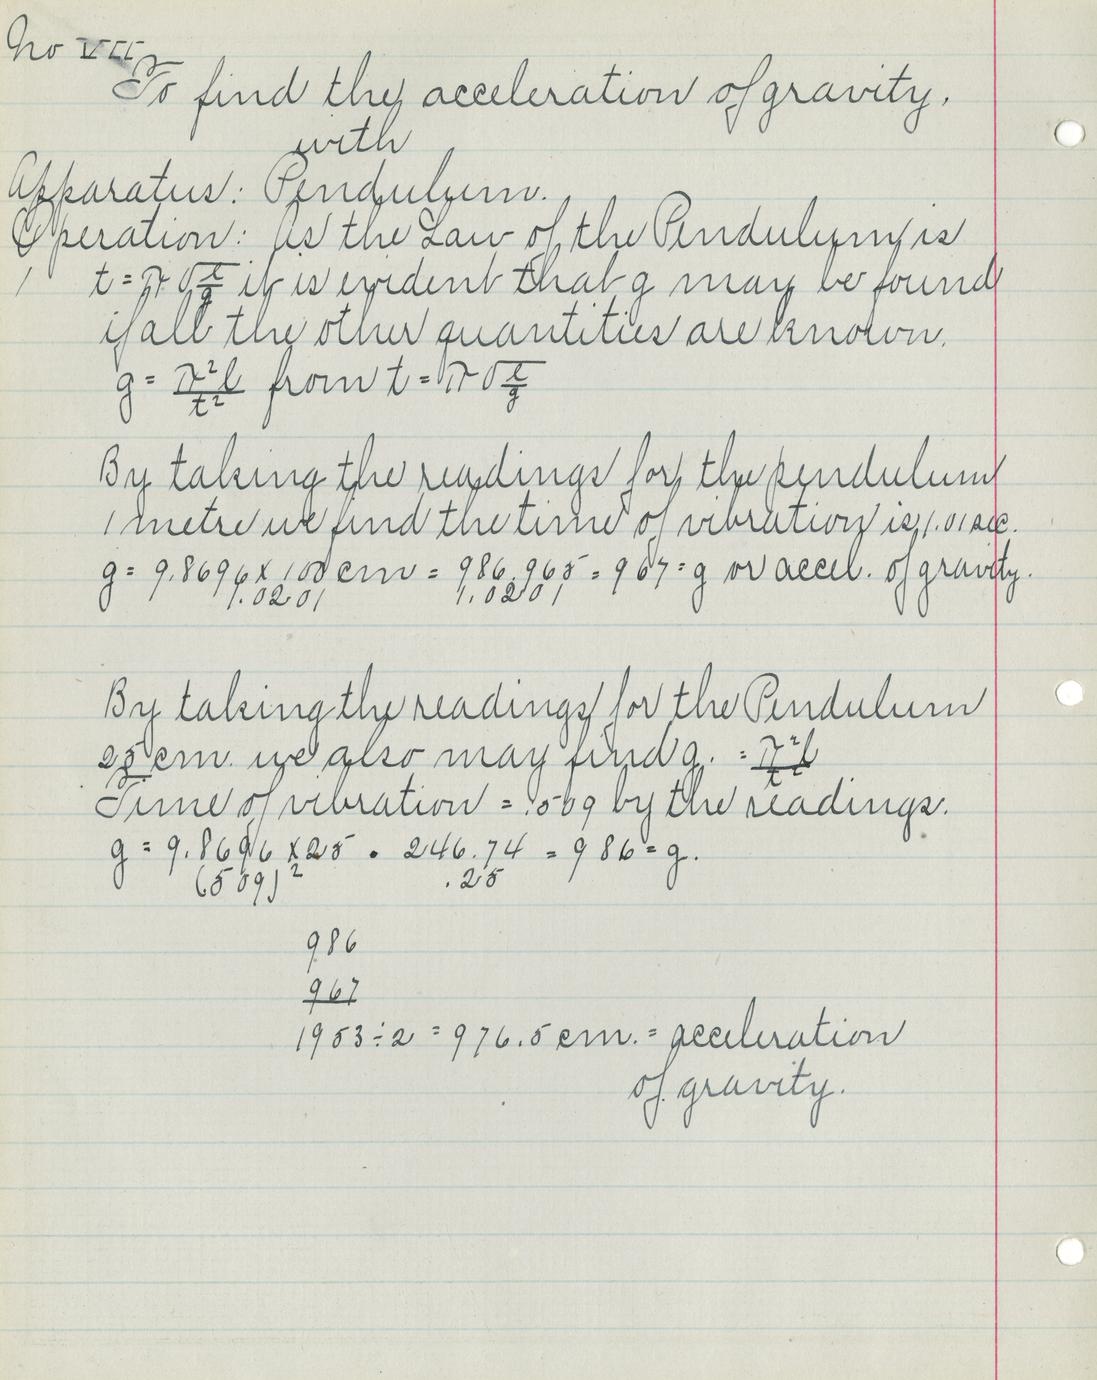 No VII
To find the acceleration of gravity.
with
Apparatus: Pendulum.
Operation: As the Law of the Pendulum is
1 t = π √l/g it is evident that g may be found
if all the other quantities are known.
g = π²l/t² from t = π √l/g
By taking the readings for the pendulum
1 metre we find the time of vibration is 1.01 sec.
g = 9.8696 x 100 cm = 986.965 = 967 = g or accel. of gravity.
1.0201 1.0201
By taking the readings for the Pendulum
25 cm. we also may find g. = π²l/t²
Time of vibration = .509 by the readings.
g = 9.8696 x 25 = 246.74 = 986 = g.
(509)² .25
986
967
1953 ÷ 2 = 976.5 cm. = acceleration
of gravity.